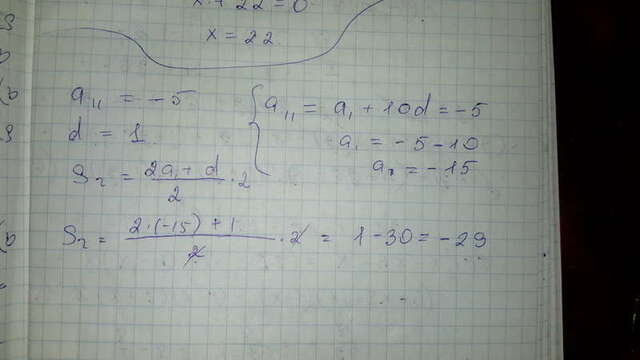 x + 22 = 0
x = 22
a₁₁ = -5
d = 1
S₂ = (2a₁ + d)/2 · 2
a₁₁ = a₁ + 10d = -5
a₁ = -5 - 10
a₁ = -15
S₂ = (2·(-15) + 1)/2 · 2 = 1 - 30 = -29